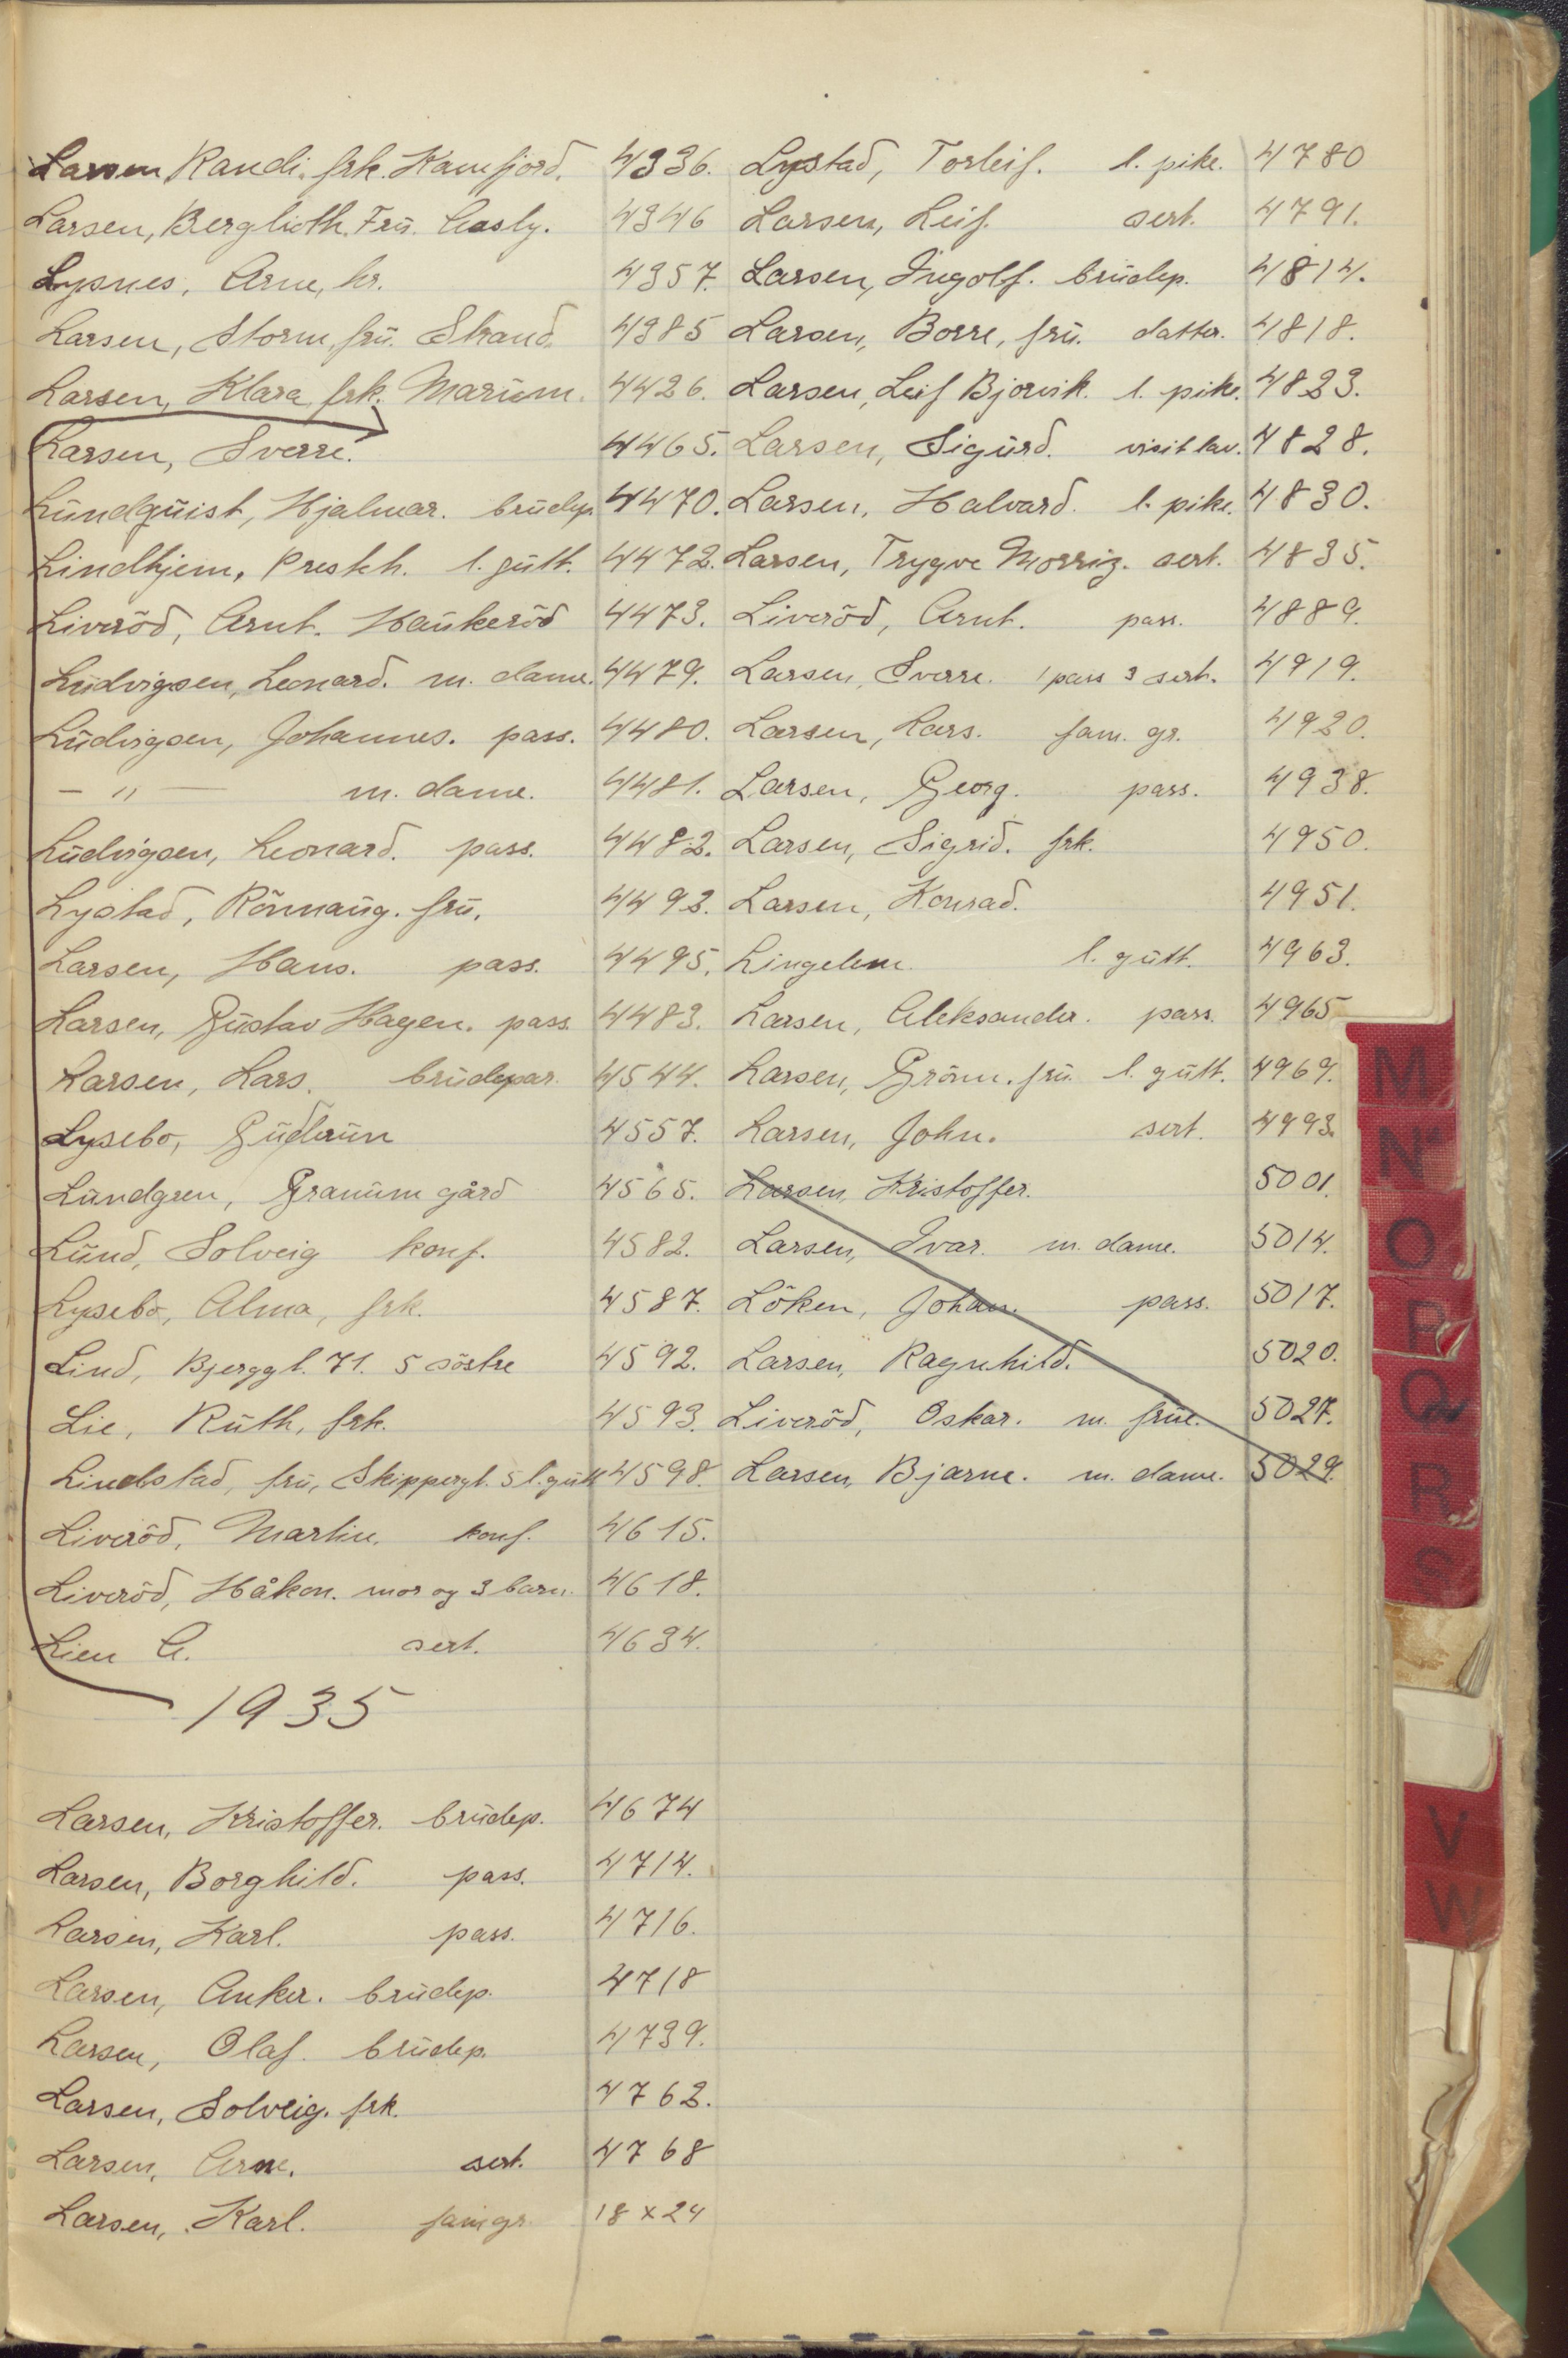 Larsen, Randi. frk. Kamfjord. 4336.
Larsen, Berglioth. Frü. Aasly. 4346
Lysnes, Arne, hr. 4357.
Larsen, Storm, frü. Strand. 4385
Larsen, Klara frk. Marüm. 4426.
Larsen, Sverre. 4465.
Lündqüist, Hjalmar. brüdep. 4470.
Lindhjem, Prestch. l. gütt. 4472.
Liveröd, Arnt. Haükeröd 4473.
Lüdvigsen, Leonard. m. dame. 4479.
Lüdvigsen, Johannes. pass. 4480.
— " — m. dame. 4481.
Lüdvigsen, Leonard. pass. 4482.
Lystad, Rönnaüg. frü. 4493.
Larsen, Hans. pass. 4495.
Larsen, Güstav Hagen. pass. 4483.
Larsen, Lars. brüdepar. 4544.
Lysebo, Güdrün 4557.
Lündgren, Granüm gård 4565.
Lünd, Solveig konf. 4582.
Lysebo, Alma, frk. 4587.
Lind, Bjerggt. 71. 5 söstre 4592.
Lie, Rüth, frk. 4593.
Lindstad, frü, Skippergt. 5 l. gütt 4598.
Liveröd, Martin. konf. 4615.
Liveröd, Håkon. mor og 3 barn. 4618.
Lien A. sert. 4634.
1935
Larsen, Kristoffer. brüdep. 4674
Larsen, Borghild. pass. 4714.
Larsen, Karl. pass. 4716.
Larsen, Anker. brüdep. 4718
Larsen, Olaf. brüdep. 4739.
Larsen, Solveig. frk. 4762.
Larsen, Arne. sert. 4768
Larsen, Karl. fam gr. 18 x 24
Lystad, Torleif. l. pike. 4780
Larsen, Leif. sert. 4791.
Larsen, Ingolf. brüdep. 4814.
Larsen, Borre, frü. datter. 4818.
Larsen, Leif Bjorvik. l. pike. 4823.
Larsen, Sigürd. visit lav. 4828.
Larsen, Halvard. l. pike. 4830.
Larsen, Trygve Norrig. sert. 4835.
Liveröd, Arnt. pass. 4889.
Larsen, Sverre. 1 pass 3 sert. 4919.
Larsen, Lars. fam. gr. 4920.
Larsen, Georg. pass. 4938.
Larsen, Sigrid. frk. 4950.
Larsen, Konrad. 4951.
Lingelem. l. gütt. 4963.
Larsen, Aleksander. pass. 4965
Larsen, Grönn. frü. l. gütt. 4969.
Larsen, John. sert. 4993.
Larsen, Kristoffer. 5001.
Larsen, Ivar. m. dame. 5014.
Löken, Johan. pass. 5017.
Larsen, Ragnhild. 5020.
Liveröd, Oskar. m. früe. 5027.
Larsen, Bjarne. m. dame. 5029.
M
N
O
P
Q
R
S
V
W